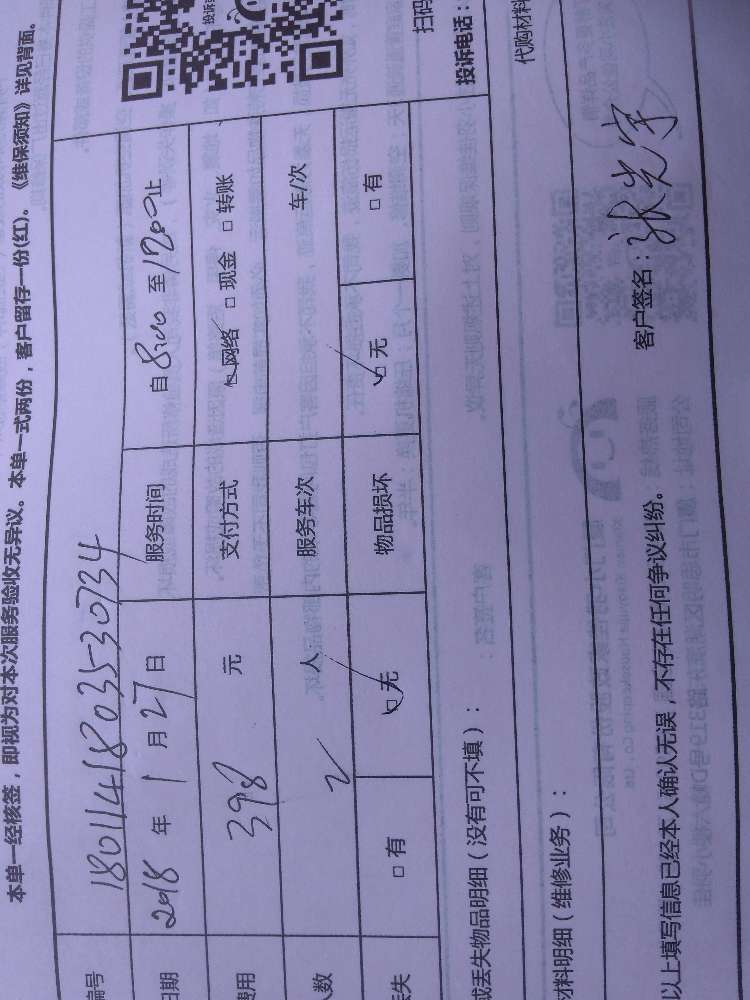 本单一经核签，即视为对本次服务验收无异议。本单一式两份，客户留存一份(红)。《维保须知》详见背面。
编号 1801141803530734
日期 2018 年 1 月 27 日 服务时间 自 8:00 至 1200 止
费用 398 元 支付方式 网络 现金 转账
人数 2 人 服务车次 车/次
丢失 有 无 物品损坏 无 有
扫码
投诉电话：
或丢失物品明细（没有可不填）：
代购材料
材料明细（维修业务）：
客户签名：
以上填写信息已经本人确认无误，不存在任何争议纠纷。